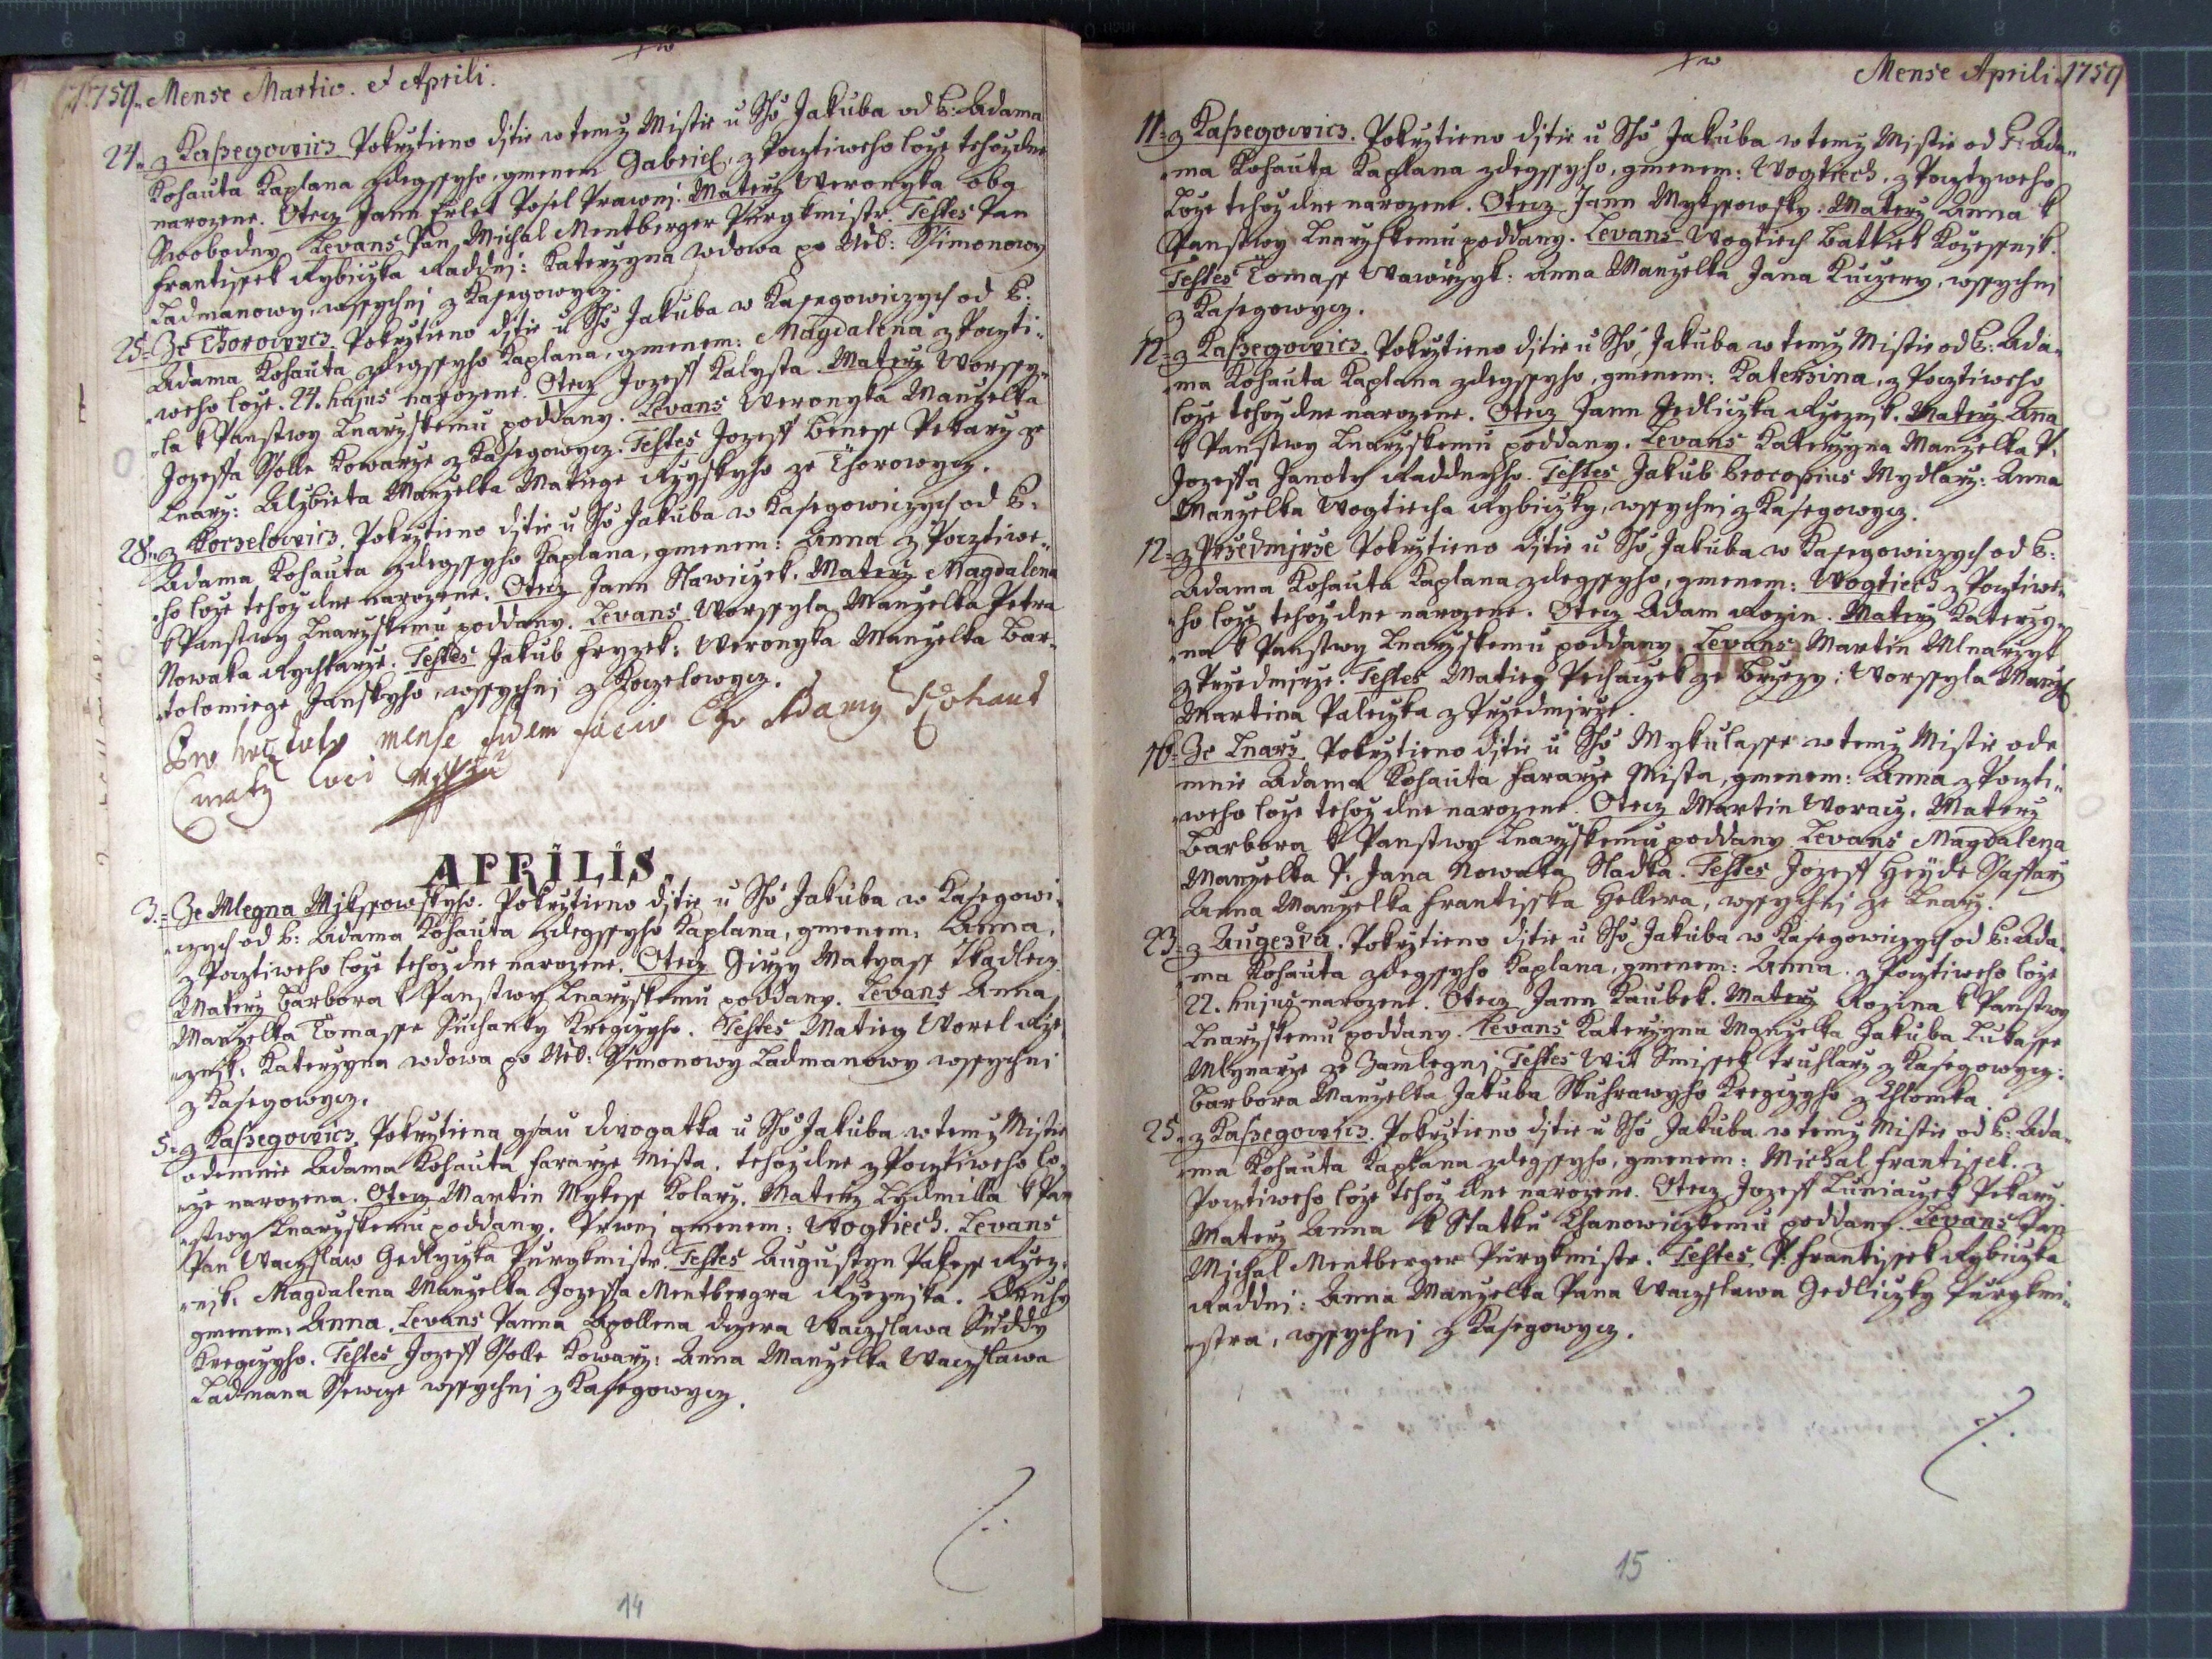 1759. Mense Martio. et Aprili.
24. z Kaßegowicz Pokrztieno djtie w temz Mistie u Sho Jakuba od k: Adama
Kohauta Kaplana zdegssyho, gmenem Gabriel, z Pocztiweho loze tehozdne
narozene. Otecz Jann Erlet Posel Prawnj. Materz Weronyka obg
Swobodny. Levans Pan Michal Mentberger Purgkmistr. Testes Pan
Frantissek Rybiczka Raddnj: Katerzyna wdowa po Neb: Ssimonowy
Ladmanowy, wssychni z Kasegowycz.
25. Ze Chorowicz Pokrztieno djtie u Sho Jakuba w Kasegowiczych od k:
Adama Kohauta zdegssyho Kaplana, gmenem: Magdalena z Poczti-
weho loze. 24. hujus narozene. Otecz Jozeff Kalysta. Materz Worssy-
la k Panstwy Lnarzskemu poddany. Levans Weronyka Manzelka
Jozeffa Sstolle Kowarze z Kasegowycz. Testes Jozeff Beness Pekarz ze
Lnarz: Alzbieta Manzelka Matiege Rzyskyho ze Chorowycz.
28. z Korzelowicz. Pokrztieno djtie u Sho Jakuba w Kasegowiczych od k:
Adama Kohauta zdegssyho Kaplana, gmenem: Anna z Pocztiwe-
ho loze tehoz dne narozene. Otecz Jann Slawiczek. Materz Magdalena
k Panstwy Lnarzskemu poddany. Levans Worssyla Manzelka Petra
Nowaka Rychtarze. Testes Jakub Fryzek: Weronyka Manzelka Bar-
tolomiege Janskyho, wssychni z Korzelowycz.
mense Adamus Kohaut
APRILIS.
3. Ze Mlegna Mjkssowskyho. Pokrztieno djtie u Sho Jakuba w Kasegowi-
czych od k: Adama Kohauta zdegssyho Kaplana, gmenem: Anna,
z Pocztiweho loze tehoz dne narozene. Otecz Girzy Matyass Tkadlecz
Materz Barbora k Panstwy Lnarzskemu poddany. Levans Anna
Manzelka Tomasse Suchanky Kregczyho. Testes Matieg Worel Rze-
znjk, Katerzyna wdowa po Neb: Ssimonowy Ladmanowy wssychni
z Kasegowycz.
5. z Kaßegowicz. Pokrztiena gsau dwogatka u Sho Jakuba w temz Mistie
odemnie Adama Kohauta Fararze Mista, tehoz dne z Pocztiweho lo-
ze narozena. Otecz Martin Mykess Kolarz. Materz Ludmilla k Pan-
stwy Lnarzskemu poddany. Prwnj gmenem: Wogtiech. Levans
Pan Waczslaw Gedlyczka Purgkmistr. Testes Augustyn Pakess Rzez-
njk. Magdalena Manzelka Jozeffa Mentbergra Rzeznjka. Druhy
gmenem. Anna. Levans Panna Apollena dczera Waczslawa Suddy
Kregczyho. Testes Jozeff Sstolle Kowarz: Anna Manzelka Waczslawa
Ladmana Ssewcze wssychni z Kasegowycz.
14
Mense Aprili. 1759
11. z Kaßegowicz. Pokrztieno djtie u Sho Jakuba w temz Mistie od k: Ada-
ma Kohauta Kaplana zdegssyho, gmenem: Wogtiech, z Pocztyweho
Loze tehoz dne narozene. Otecz Jann Mykssowsky: Materz Anna k
Panstwy Lnarzskemu poddany. Levans Wogtiech Battiek Kozessnjk.
Testes Tomass Wawrzyk: Anna Manzelka Jana Kuczery, wssychni
z Kasegowycz.
12. z Kaßegowicz. Pokrztieno djtie u Sho Jakuba w temz Mistie od k: Ada-
ma Kohauta Kaplana zdegssyho, gmenem: Katerzina, z Pocztiweho
loze tehoz dne narozene. Otecz Jann Jedliczka Rzeznjk. Materz Anna
k Panstwy Lnarzskemu poddany. Levans Katerzyna Manzelka P.
Jozeffa Janoty Raddnyho. Testes Jakub Procopius Mydlarz: Anna
Manzelka Wogtiecha Rybiczky, wssychni z Kasegowycz.
12. z Przedmjrze Pokrztieno djtie u Sho Jakuba w Kasegowiczych od k:
Adama Kohauta Kaplana zdegssyho, gmenem: Wogtiech z Pocztiwe-
ho loze tehoz dne narozene. Otecz Adam Rozin. Materz Katerzy-
na k Panstwy Lnarzskemu poddany. Levans Martin Mlnarzyk
z Przedmjrze. Testes Matieg Pechaczek ze Brzezy: Worssyla Manz
Martina Paleczka z Przedmjrze.
16. Ze Lnarz. Pokrztieno djtie u Sho Mykulasse w temz Mistie ode
mnie Adama Kohauta Fararze Mista, gmenem: Anna z Poczti-
weho loze tehoz dne narozene. Otecz Martin Woracz. Materz
Barbora k Panstwy Lnarzskemu poddany. Levans Magdalena
Manzelka P. Jana Nowaka Sladka. Testes Jozeff Heyde Ssaffarz
Anna Manzelka Frantisska Hellera, wssychni ze Lnarz.
23. z Augezda. Pokrztieno djtie u Sho Jakuba w Kasegowiczych od k: Ada-
ma Kohauta zdegssyho Kaplana, gmenem: Anna. z Pocztiweho loze
22. hujus narozene. Otecz Jann Kaubek. Materz Rozina k Panstwy
Lnarzskemu poddany. Levans Katerzyna Manzelka Jakuba Lukasse
Mlynarze ze Zamlegnj. Testes Wit Smissek Truhlarz z Kasegowycz:
Barbora Manzelka Jakuba Skuhrawyho Kregczyho z Chlomka.
25. z Kaßegowicz. Pokrztieno djtie u Sho Jakuba w temz Mistie od k: Ada-
ma Kohauta Kaplana zdegssyho, gmenem: Michal Frantissek. z
Pocztiweho loze tehoz dne narozene. Otecz Jozeff Luniaczek Pekarz.
Materz Anna k Statku Chanowiczkemu poddany. Levans Pan
Michal Mentberger Purgkmistr. Testes P. Frantissek Rybiczka
Raddnj: Anna Manzelka Pana Waczslawa Gedliczky Purgkmi-
stra, wssychni z Kasegowycz.
15